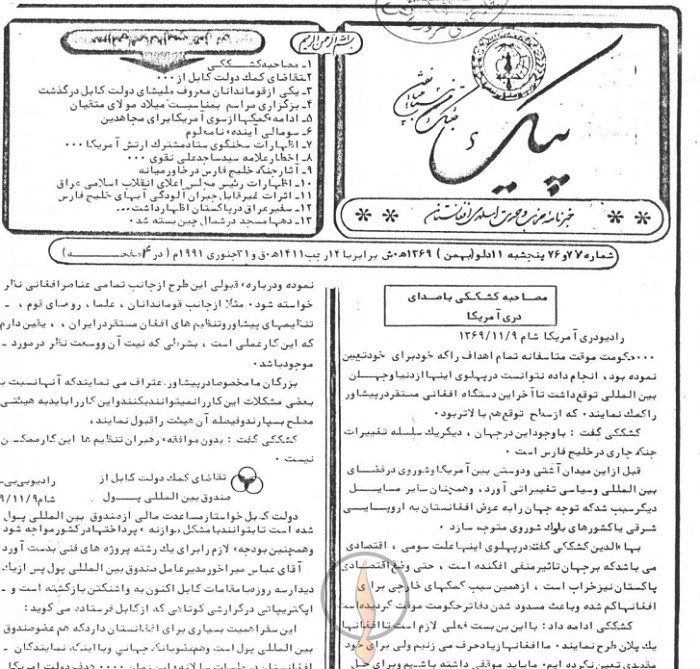 بسم الله الرحمن الرحیم
پیک
خبرنامه حزب وحدت اسلامی افغانستان
۱ـ مصاحبه کشککی
۲ـ تقاضای کمک دولت کابل از ۰۰۰
۳ـ یکی از قوماندانان معروف ملیشای دولت کابل درگذشت
۴ـ برگزاری مراسم بمناسبت میلاد مولای متقیان
۵ـ ادامه کمکها از سوی آمریکا برای مجاهدین
۶ـ سومالی آینده نامعلوم
۷ـ اظهارات سخنگوی ستاد مشترک ارتش آمریکا ۰۰۰
۸ـ اخطار علامه سید ساجد علی نقوی ۰۰۰
۹ـ آثار جنگ خلیج فارس در خاورمیانه
۱۰ـ اظهارات رئیس مجلس اعلای انقلاب اسلامی عراق
۱۱ـ اثرات غیرقابل جبران آلودگی آبهای خلیج فارس
۱۲ـ سفیر عراق در پاکستان اظهار داشت ۰۰۰
۱۳ـ دهها مسجد در شمال چین بسته شد ۰
شماره ۷۷ و ۷۶ پنجشبه ۱۱ دلو (بهمن) ۱۳۶۹ ه‍ ش برابر با ۱۴ رجب ۱۴۱۱ ه‍ ق و ۳۱ جنوری ۱۹۹۱ م (در ۴ صفحه)
مصاحبه کشککی با صدای
دری آمریکا
رادیو دری آمریکا شام ۱۳۶۹/۱۱/۹
۰۰۰ حکومت موقت متاسفانه تمام اهداف را که خود برای خود تعیین
نموده بود، انجام داده نتوانست در پهلوی اینها از دنیا و جهان
بین المللی توقع داشت تا آخر این دستگاه افغانی مستقر در پیشاور
را کمک نمایند ۰ که از سطح توقع هم بالا تر بود ۰
کشککی گفت : با وجود این در جهان ، دیگر یک سلسله تغییرات
جنگ جاری در خلیج فارس است ۰
قبل از این میدان آشتی و دوستی بین آمریکا و شوروی در فضای
بین المللی و سیاسی تغییراتی آورد ، و همچنان سایر مسایل
دیگر سبب شد که توجه جهان را به عوض افغانستان به اروپایی
شرقی یا کشورهای بلوک شوروی متوجه سازد ۰
بها ٔ الدین کشککی گفت : در پهلوی اینها علت سومی ، اقتصادی
می باشد که بر جهان تاثیر منفی افکنده است ، حتی وضع اقتصادی
پاکستان نیز خراب است ، از همین سبب کمکهای خارجی برای
افغانها کم شده و باعث مسدود شدن دفاتر حکومت موقت گردیده است
کشککی ادامه داد : با این بن بست فعلی لازم است تا افغانها
یک پلان طرح نمایند ۰ ما افغانها زیاد حرف می زنیم ولی برای خود
مقصدی تعیین نکرده ایم ۰ ما باید موقفی داشته باشیم و برای حل
نموده و درباره ٔ قبولی این طرح از جانب تمامی عناصر افغانی نظر
خواسته شود ۰ مثلا از جانب قوماندانان ، علما ، روسای قوم ، ـ
تنظیمهای پیشاور و تنظیم های افغان مستقر در ایران ، ، یقین دارم
که این کار عملی است ، بشرطی که نیت آن و وسعت نظر در مورد ـ
موجود باشد ۰
بزرگان ما مخصوصا در پیشاور اعتراف می نمایند که آنها نسبت به
بعضی مشکلات این کار را نمیتوانند بکنند و این کار را باید به هیئتی
مصلح بسپارند و فیصله آن هیئت را قبول نمایند،
کشککی گفت : بدون موافقه ٔ رهبران تنظیم ها این کار ممکن
نیست ۰
تقاضای کمک دولت کابل از
صندوق بین المللی پول
رادیو بی بی
شام ۹/۱۱/
دولت کابل خواستار مساعدت مالی از صندوق بین المللی پول
شده است تا بتوانند با مشکل موازنه ٔ پرداختها در کشور مواجه شود
و همچنین بودجه ٔ لازم را برای یک رشته پروژه های فنی بدست آورد
آقای عباس میراخور مدیر عامل صندوق بین المللی پول پس از یک
دیدار سه روزه با مقامات کابل اکنون به واشنگتن بازگشته است و ـ
اکثر بیاناتی در گزارشی کوتاهی که از کابل فرستاده می گوید :
این سفر اهمیت بسیاری برای افغانستان دارد که هم عضو صندوق
بین المللی پول است وهم عضو بانک جهانی و با اینکه نمایندگان ـ